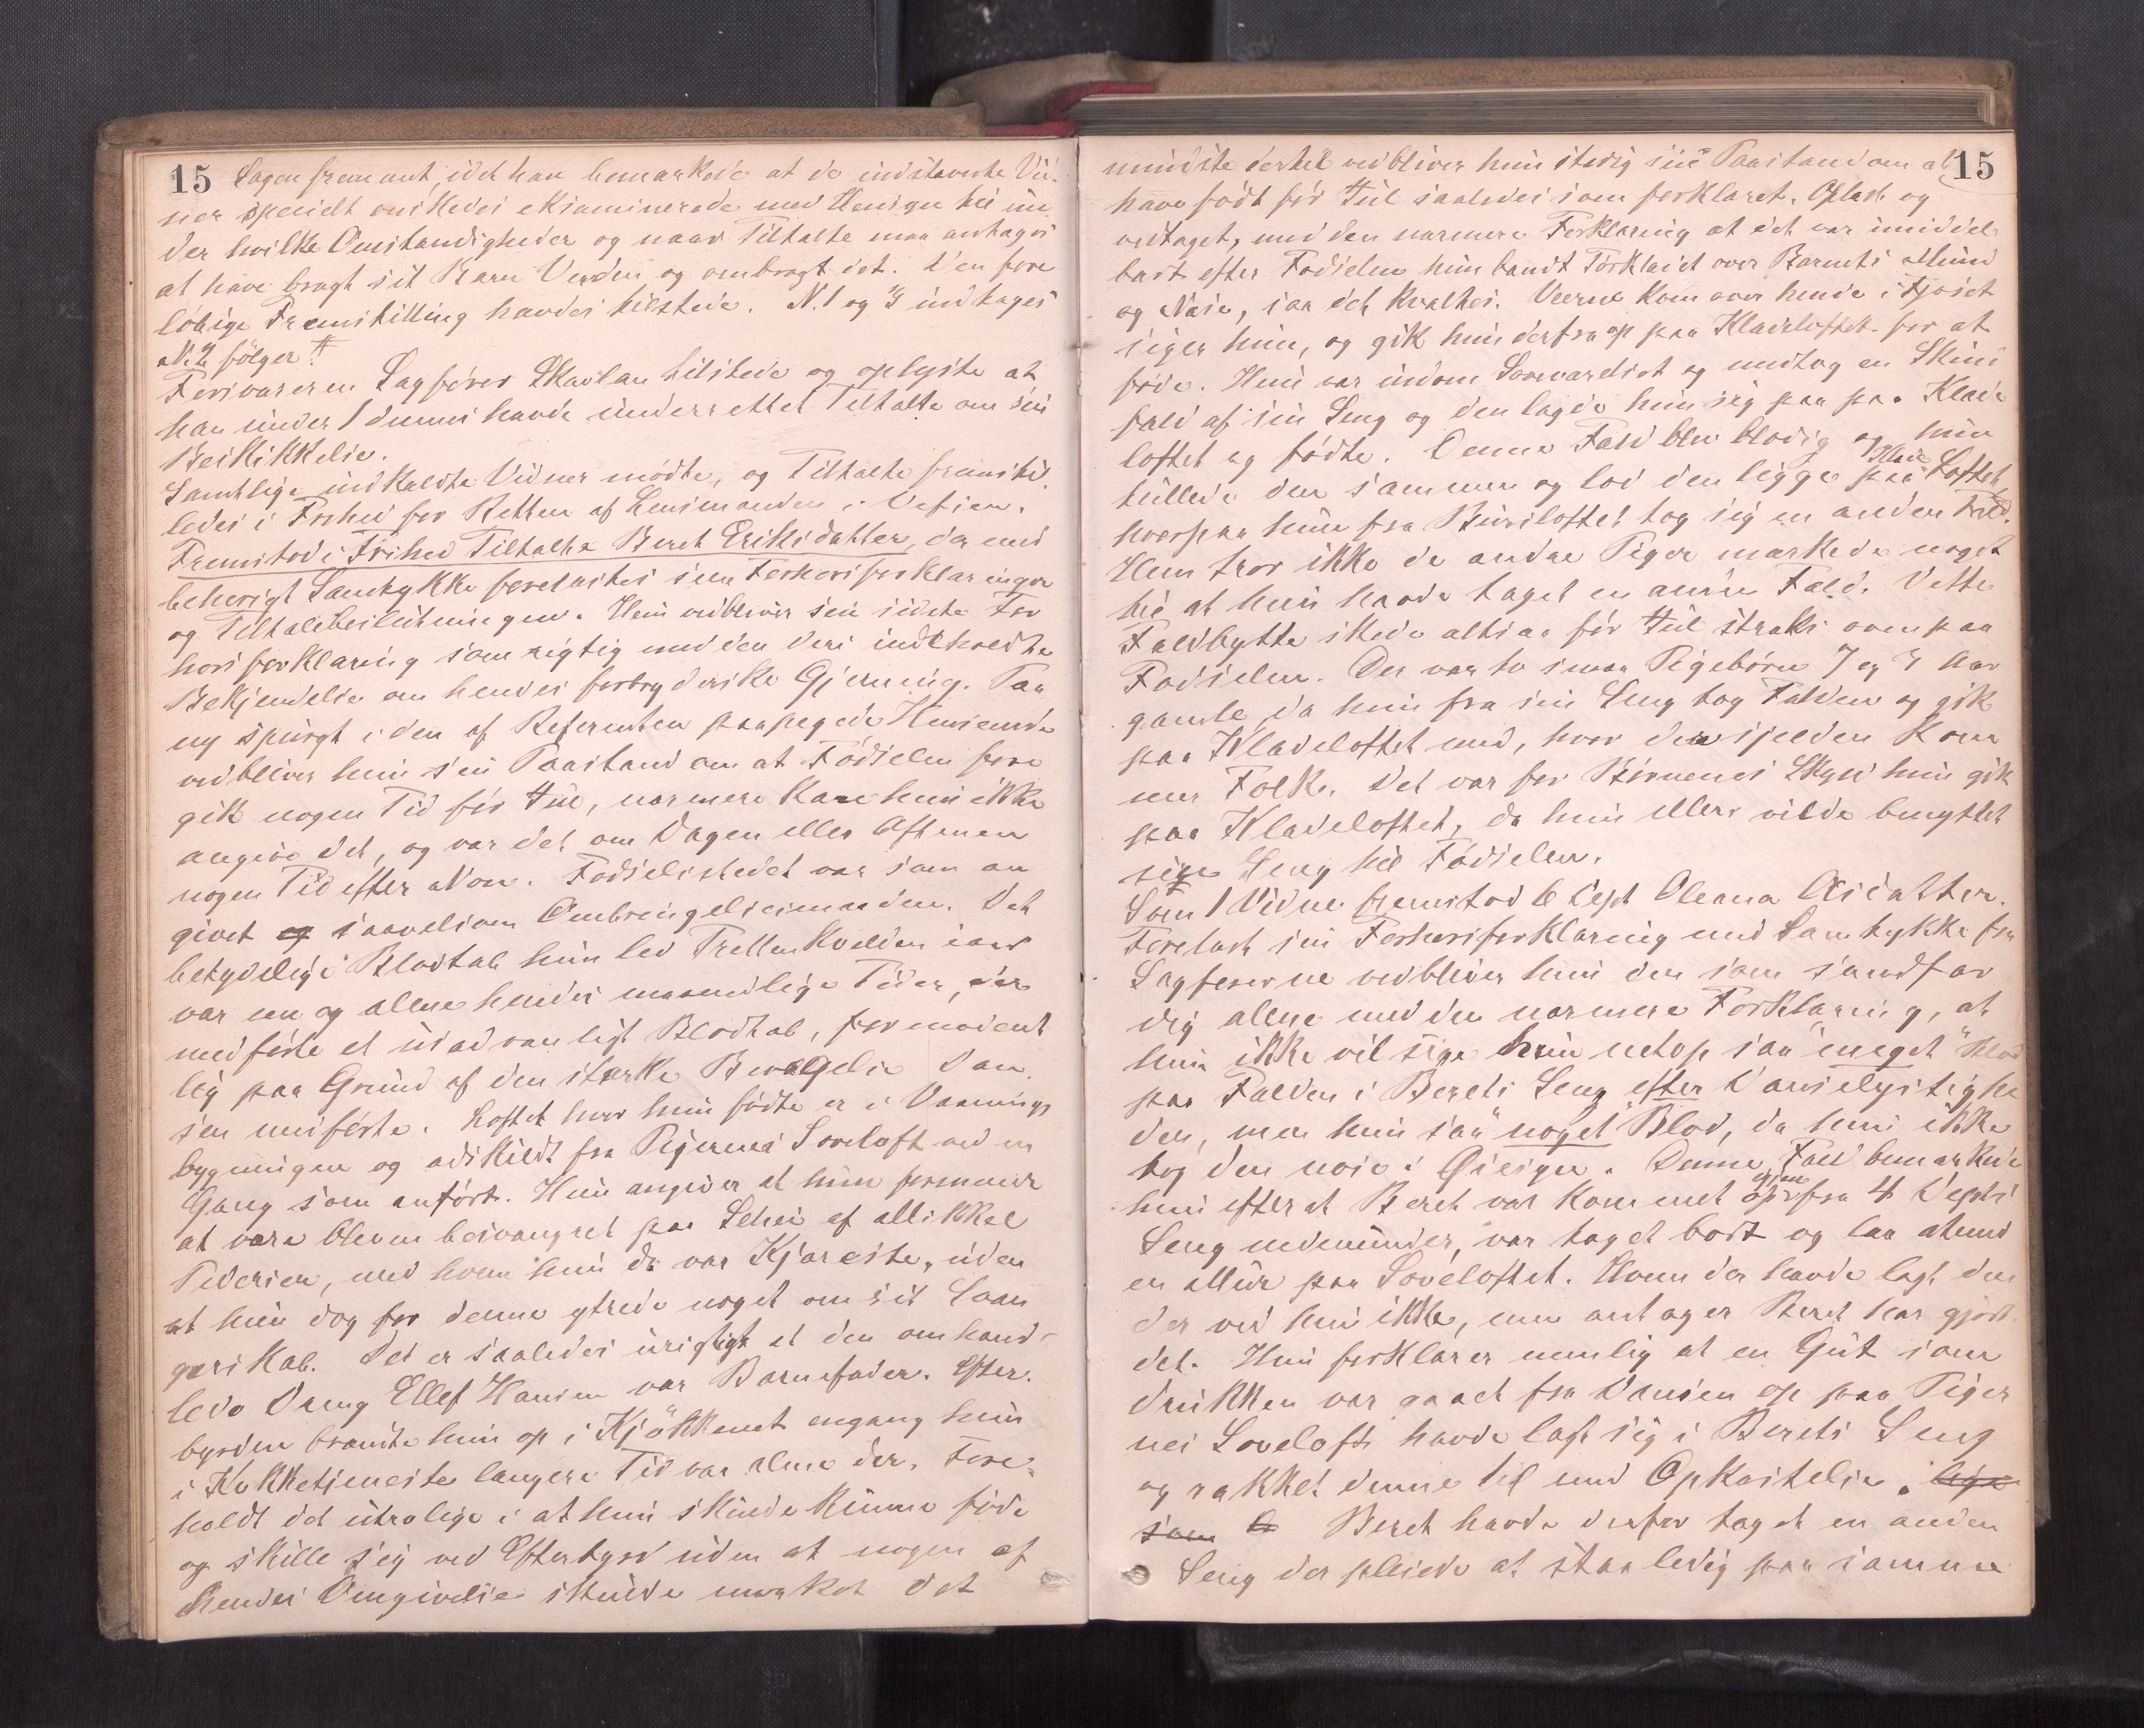 15 Sagen fremmet, idet han bemærkede at de indstævnte Vid-
ner specielt ønskedes eksaminerede med Hensyn til un
der hvilke Omstændigheder og naar Tiltalte maa antages
at have bragt sit Barn Verden og ombragt det. Den fore
løbige Fremstilling havdes tilstede. N. 1 og 3 indtages
N. 2 følger #
Forsvareren Sagfører Skavlan tilstede og oplyste at
han under 1 dennes havde underrettet Tiltalte om sin
Beskikkelse.
Samtlige indkaldte Vidner mødte, og Tiltalte fremstil
ledes i Frihed for Retten af Lensmanden i Vefsen.
Fremstod i Frihed Tiltalte Beret Eriksdatter, der med
behørigt Samtykke forelæstes sin Forhørsforklaringer
og Tiltalebeslutningen. Hun vedbliver sin sidste For
hørsforklaring som rigtig med den deri indeholdte
Bekjendelse om hendes forbryderske Gjerning. Paa
ny spurgt i den af Referenten paapegede Henseende
vedbliver hun sin Paastand om at Fødselen fore
gik nogen Tid før Jul, nærmere kan hun ikke
angive det, og var det om Dagen eller Aftenen
nogen Tid efter Non. Fødselsstedet var som an
givet og saavelsom Ombringelsesmaaden. Det
betydelige Blodtab hun led Trettenkvelden iaar
var en og alene hendes maanedlige Tider, der
medførte et usædvanligt Blodtab, formodent
lig paa Grund af den stærke Bevægelse Dan
sen medførte. Loftet hvor hun fødte er i Vaanings
bygningen og adskildt fra Pigernes Soveloft ved en
Gang som anført. Hun angiver at hun formener
at være bleven besvangret paa af Mikkel
Pedersen, med hvem hun da var Kjæreste, uden
at hun dog for denne ytrede noget om sit Svan
gerskab. Det er saaledes urigtigt at den omhand-
lede Dreng Ellef Hansen var Barnefader. Efter-
byrden brændte hun op i Kjøkkenet engang hun
i Kokketjeneste længere Tid var alene der. Fore-
holdt det utrolige i at hun skulde kunne føde
og skille sig ved Efterbyrd uden at nogen af
hendes Omgivelse skulde mærket det
15
mindste dertil vedbliver hun stadig sin Paastand om at
have født før Jul saaledes som forklaret. Oplæst og
vedtaget, med den nærmere Forklaring at det var umiddel
bart efter Fødselen hun bandt Tørklædet over Barnets Mund
og Næse, saa det kvaltes. Veerne kom over hende i Fjøset
siger hun, og gik hun derfra op paa Klædeloftet for at
føde. Hun var indom Soveværelset og medtog en Skind
fæld af sin Seng og den lagde hun sig paa paa Klæde
loftet og fødte. Denne Fæld blev blodig og hun
tullede den sammen og lod den ligge paa Klæde Loftet,
hvorpaa hun fra Bursloftet tog sig en anden Fæld.
Hun tror ikke de andre Piger mærkede noget
til at hun havde taget en anden Fæld. Dette
Fældbytte skede altsaa før Jul straks ovenpaa
Fødselen. Der var to smaa Pigebørn 7 og 9 Aar
gamle da hun fra sin Seng tog Fælden og gik
paa Klædeloftet med, hvor der sjelden kom
mer Folk. Det var for Børnenes Skyld hun gik
paa Klædeloftet, da hun ellers vilde benyttet
sin Seng til Fødselen.
Som 1 Vidne fremstod 6 Dept Oleana Asdatter.
Forelæst sin Forhørsforklaring med Samtykke fra
Sagførerne vedbliver hun den som sandfær
dig alene med den nærmere Forklaring, at
hun ikke vil sige hun netop saa "meget" Blod
paa Fælden i Berets Seng efter Danselystighe
den, men hun saa "noget" Blod, da hun ikke
tog den nøie i Øiesyn. Denne Fæld bemærkede
hun efter at Beret var kommet op igjen fra 4 Depts
Seng nedenunder, var taget bort og laa atmed
en Mur paa Soveloftet. Hvem der havde lagt den
der ved hun ikke, men antager Beret har gjort
det. Hun forklarer nemlig at en Gut som
drukken var gaaet fra Dansen op paa Piger
nes Soveloft havde lagt sig i Berets Seng
og rakket denne til med Opkastelse. lige
som B Beret havde derfor taget en anden
Seng der pleiede at staa ledig paa samme